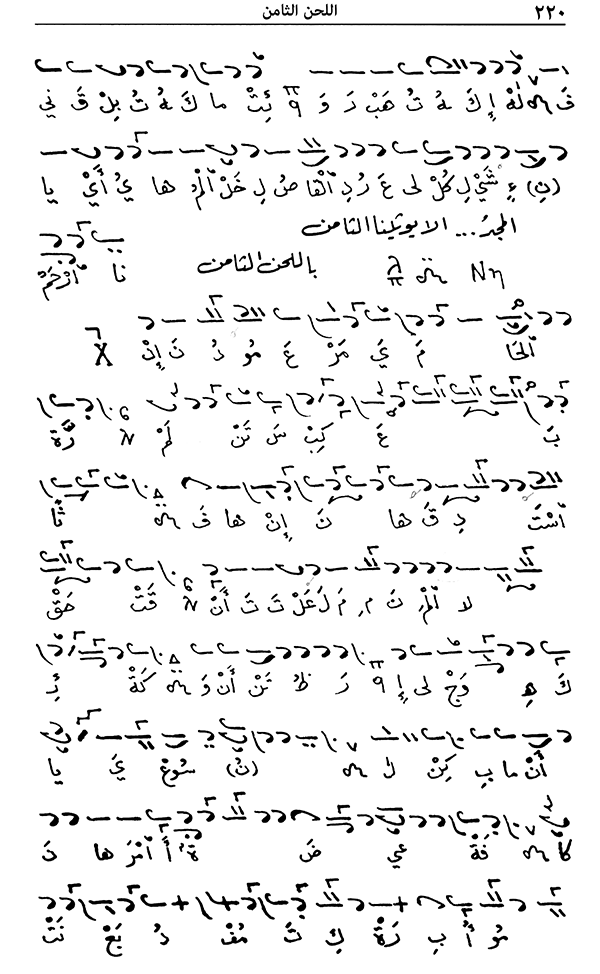 ٢٢٠ اللحن الثامن
فَ لَهْ إِ كَ هُ تُ هَبْ رَ وَ ئِتْ ما كَ هُ تُ بِلْ قَ ني
(نِ) ءٍ شَيْ لِ كُلْ لى عَ رُ دِ اَلْقا صُ لِ خَلْ اَلْمُ ها يُ أَيْ يا
المجدُ... الايوثينا الثامن
Nη باللحن الثامن نا اَرْحَمْ
اَلْحَا مَ يَ مَرْ عَ مُو دُ نَ إِنْ X
بَ عَ كِبْ سَ تَنْ لَمْ رَّةْ
اَسْتَ دِ قَ ها نَ إِنْ ها فَ ثًا
لا اَلْمْ نَ مِ مَ لَعَلْ تَ تَ أَنْ قَتْ حَقْ
كَ هِ وَجْ لى إِ رَ ظُ تَنْ أَنْ وَ كَةْ ئِ
أَنْ ما بِ كِنْ ل (نُ) سُوعْ يَ يا
كا فَةْ عي ضَ ةٌ أَ اَمْرَ ها نَ
مُو أُ بِ رَةْ كِ تَ مُفْ دُ بَعْ نَتْ